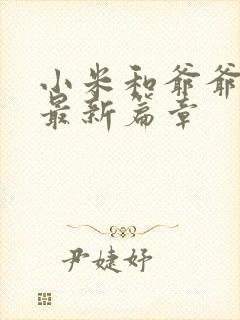 小米和爷爷
最新篇章
尹婕妤